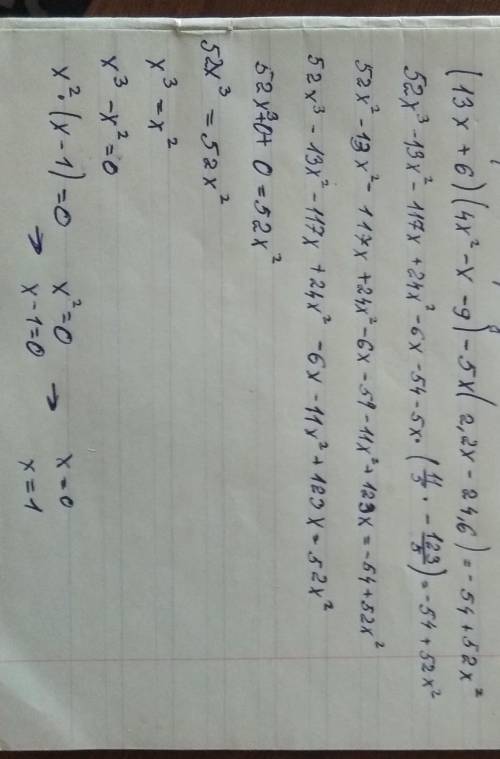 (13x + 6)(4x² - x - 9) - 5x(2,2x - 24,6) = -54 + 52x²
52x³ - 13x² - 117x + 24x² - 6x - 54 - 5x · (11/5 · - 123/5) = -54 + 52x²
52x² - 13x² - 117x + 24x² - 6x - 54 - 11x² + 123x = -54 + 52x²
52x³ - 13x² - 117x + 24x² - 6x - 11x² + 123x = 52x²
52x³ + 0 + 0 = 52x²
52x³ = 52x²
x³ = x²
x³ - x² = 0
x² · (x - 1) = 0 → x² = 0 → x = 0
x - 1 = 0 x = 1